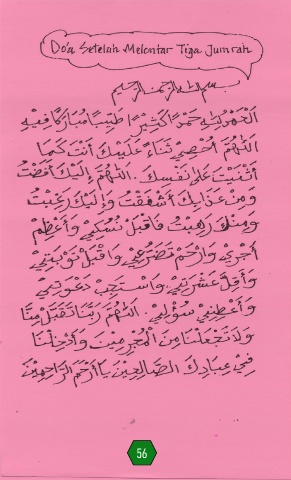 Do'a Setelah Melontar Tiga Jumrah
بسم الله الرحمن الرحيم
اَلْحَمْدُ لِلّٰهِ حَمْدًا كَثِيْرًا طَيِّبًا مُبَارَكًا فِيْهِ
اَللّٰهُمَّ اُحْصِيْ ثَنَاءً عَلَيْكَ اَنْتَ كَمَا
اَثْنَيْتَ عَلٰى نَفْسِكَ. اَللّٰهُمَّ اِلَيْكَ اَفَضْتُ
وَمِنْ عَذَابِكَ اَشْفَقْتُ وَاِلَيْكَ رَغِبْتُ
وَمِنْكَ رَهِبْتُ فَاقْبَلْ نُسُكِيْ وَاَعْظِمْ
اَجْرِيْ وَارْحَمْ تَضَرُّعِيْ وَاقْبَلْ تَوْبَتِيْ
وَاَقِلْ عَثْرَتِيْ وَاسْتَجِبْ دَعْوَتِيْ
وَاَعْطِنِيْ سُؤْلِيْ. اَللّٰهُمَّ رَبَّنَا تَقَبَّلْ مِنَّا
وَلَا تَجْعَلْنَا مِنَ الْمُجْرِمِيْنَ وَاَدْخِلْنَا
فِيْ عِبَادِكَ الصَّالِحِيْنَ يَا اَرْحَمَ الرَّاحِمِيْنَ
56